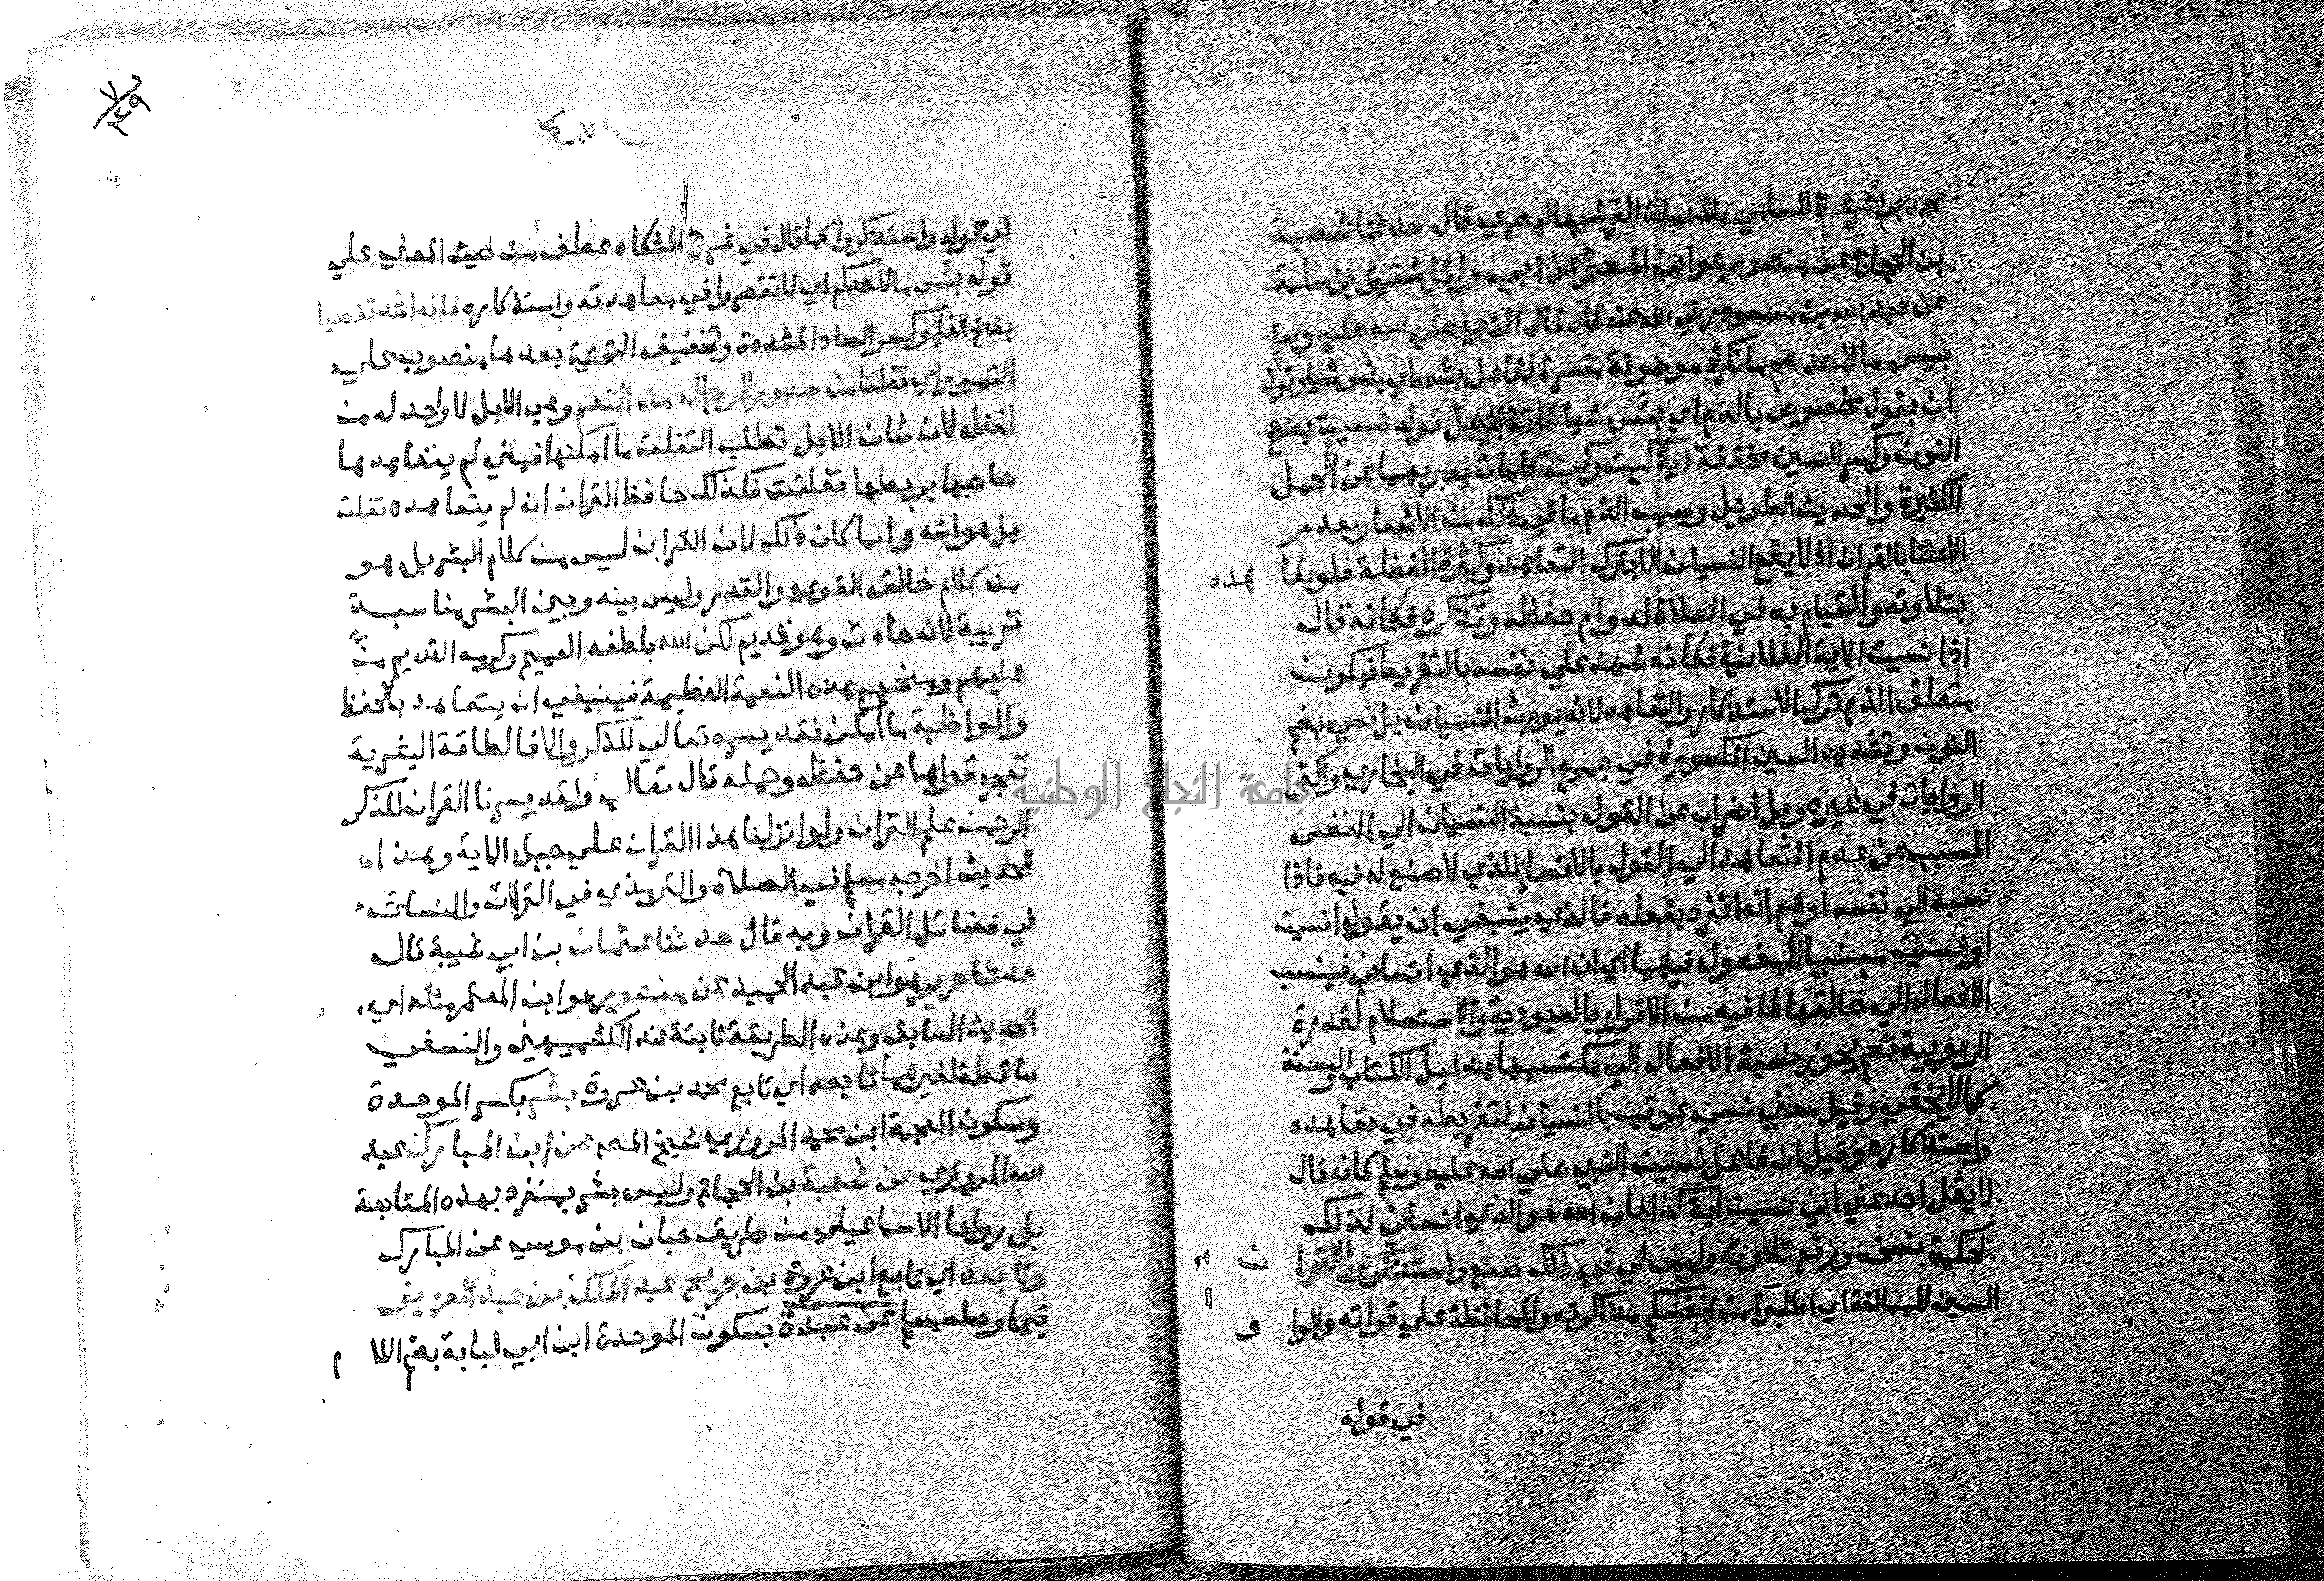 محمد بن عرعرة السامي بالمهملة القرشي البصري قال حدثنا شعبة
بن الحجاج عن منصور هو ابن المعتمر عن ابي وائل شقيق بن سلمة
عن عبد الله بن مسعود رضي الله عنه قال قال النبي صلي الله عليه وسلم
بيس مالاحدهم ما نكرة موصوفة مفسرة لفاعل بئس اي بئس شيا وقوله
ان يقول مخصوص بالذم اي بئس شيا كائنا للرجل قوله نسيت بفتح
النون وكسر السين مخففة اية كيت وكيت كلمات يعبر بهما عن الجمل
الكثيرة والحديث الطويل وسبب الذم ما في ذلك من الاشعار بعدم
الاعتنا بالقران اذ لا يقع النسيان الا بترك التعاهد وكثرة الغفلة فلو تعا هده
بتلاوته والقيام به في الصلاة لدوام حفظه وتذكره فكانه قال
اذا نسيت الاية الفلانية فكانه شهد علي نفسه بالتفريط فيكون
متعلق الذم ترك الاستذكار والتعاهد لانه يورث النسيان بل نسي بضم
النون وتشديد السين المكسورة في جميع الروايات في البخاري واكثر
الروايات في غيره وبل اضراب عن القول بنسبة النسيان الي النفس
المسبب عن عدم التعاهد الي القول بالانسا الذي لا صنع له فيه فاذا
نسبه الي نفسه اوهم انه انفرد بفعله فالذي ينبغي ان يقول انسيت
او نسيت مبنيا للمفعول فيهما اي ان الله هو الذي انساني فينسب
الافعال الي خالقها لما فيه من الاقرار بالعبودية والاستسلام لقدرة
الربوبية نعم يجوز نسبة الافعال الي مكتسبها بدليل الكتاب والسنة
كما لا يخفي وقيل معني نسي عوقب بالنسيان لتفريطه في تعاهده
واستذكاره وقيل ان فاعل نسيت النبي صلي الله عليه وسلم كانه قال
لا يقل احد عني اني نسيت اية كذا فان الله هو الذي انساني لذلك
لحكمة نسخه ورفع تلاوته وليس لي في ذلك صنع واستذكروا القرا ن
السين للمبالغة اي اطلبوا من انفسكم مذاكرته والمحافظة علي قراته والوا و
في قوله
٤٧٤
في قوله واستذكروا كما قال في شرح المشكاه عطف من حيث المعني علي
قوله بئس مالاحدكم اي لا تقصروا في معاهدته واستذكاره فانه اشد تفصيا
بفتح الفا وكسر الصاد المشددة وتخفيف التحتية بعدها منصوب علي
التمييز اي تفلتا من صدور الرجال من النعم وهي الابل لا واحد له من
لفظه لان شان الابل تطلب التفلت ما امكنها فمتي لم يتعاهدها
صاحبها بربطها تفلتت فكذلك حافظ القران ان لم يتعاهده تفلت
بل هو اشد وانما كان ذلك لان القران ليس من كلام البشر بل هو
من كلام خالق القوي والقدر وليس بينه وبين البشر مناسبة
قريبة لانه حادث وهو قديم لكن الله بلطفه العميم وكرمه القديم منّ
عليهم ومنحهم هذه النعمة العظيمة فينبغي ان يتعاهد بالحفظ
والمواظبة ما امكن فقد يسره تعالي للذكر والا فالطاقة البشرية
تعجز قواها عن حفظه وحمله قال تعالي ولقد يسرنا القران للذكر
الرحمن علم القران ولو انزلنا هذا القران علي جبل الاية وهذا
الحديث اخرجه مسلم في الصلاة والترمذي في القراات والنسائي
في فضائل القران وبه قال حدثنا عثمان بن ابي شيبة قال
حدثنا جرير هو ابن عبد الحميد عن منصور هو ابن المعتمر مثله اي
الحديث السابق وهذه الطريقة ثابتة عند الكشميهني والنسفي
ساقطة لغيرهما تابعه اي تابع محمد بن عروة بشر بكسر الموحدة
وسكون المعجمة ابن محمد المروزي شيخ المص عن ابن المبارك عبد
الله المروزي عن شعبة بن الحجاج وليس بشر بمنفرد بهذه المتابعة
بل رواها الاسماعيلي من طريق حبان بن موسي عن المبارك
وتابعه اي تابع ابن عروة بن جريج عبد الملك بن عبد العزيز
فيما وصله مسلم عن عبدة بسكون الموحدة ابن ابي لبابة بضم اللا م
جامعة النجاح الوطنية